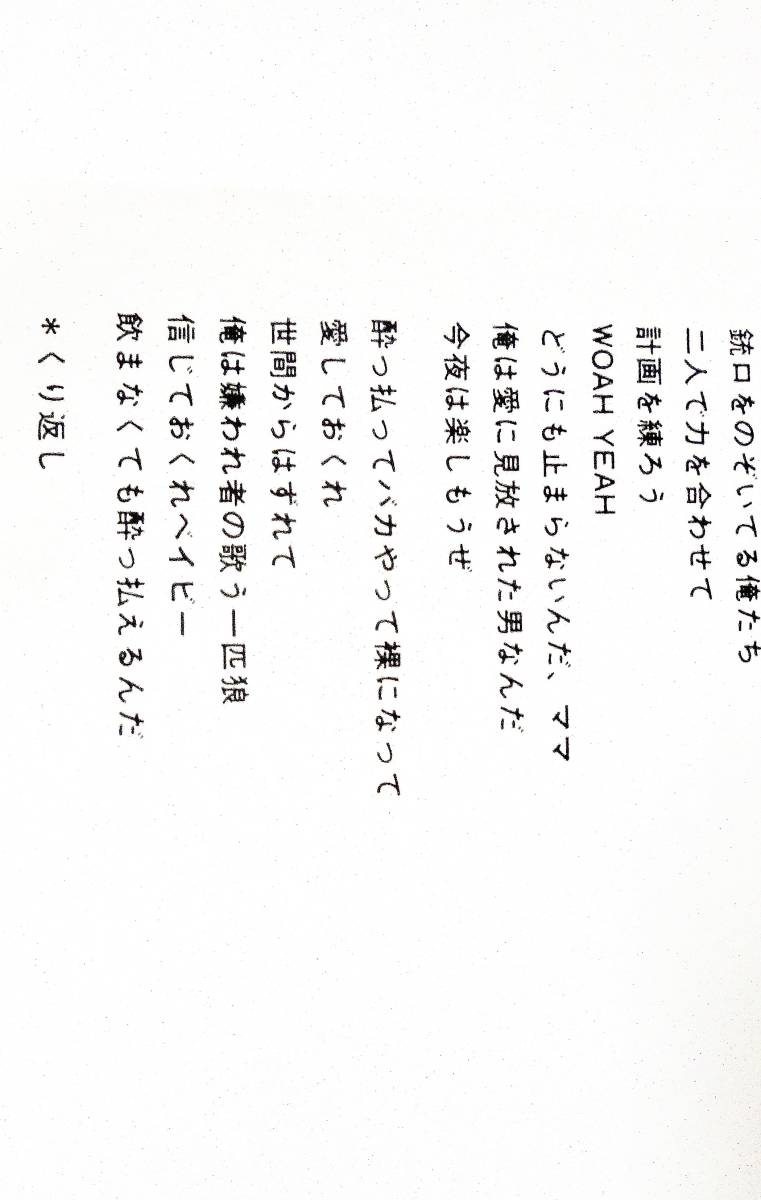 銃口をのぞいてる俺たち
二人で力を合わせて
計画を練ろう
WOAH YEAH
どうにも止まらないんだ、ママ
俺は愛に見放された男なんだ
今夜は楽しもうぜ
酔っ払ってバカやって裸になって
愛しておくれ
世間からはずれて
俺は嫌われ者の歌う一匹狼
信じておくれベイビー
飲まなくても酔っ払えるんだ
*くり返し